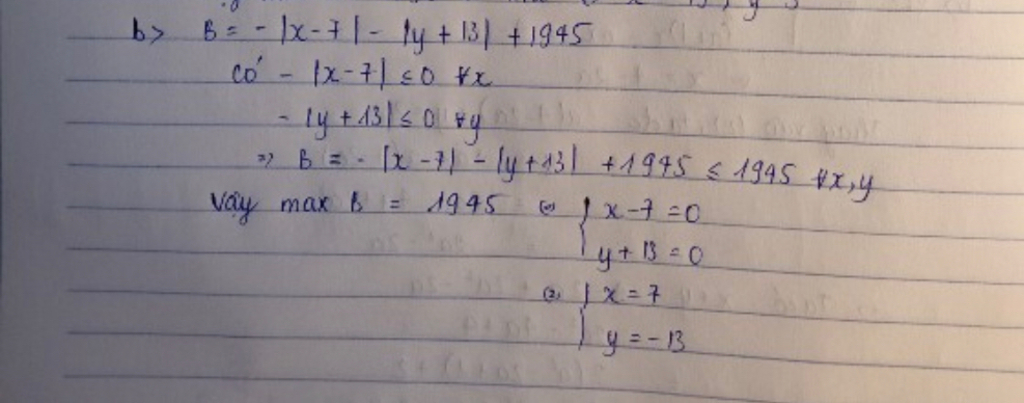 b> B = - |x-7| - |y + 13| + 1945
có - |x-7| ≤ 0 ∀x
- |y + 13| ≤ 0 ∀y
=> B = - |x-7| - |y+13| + 1945 ≤ 1945 ∀x,y
Vậy max B = 1945 <=> { x-7 = 0
y + 13 = 0
<=> { x = 7
y = -13